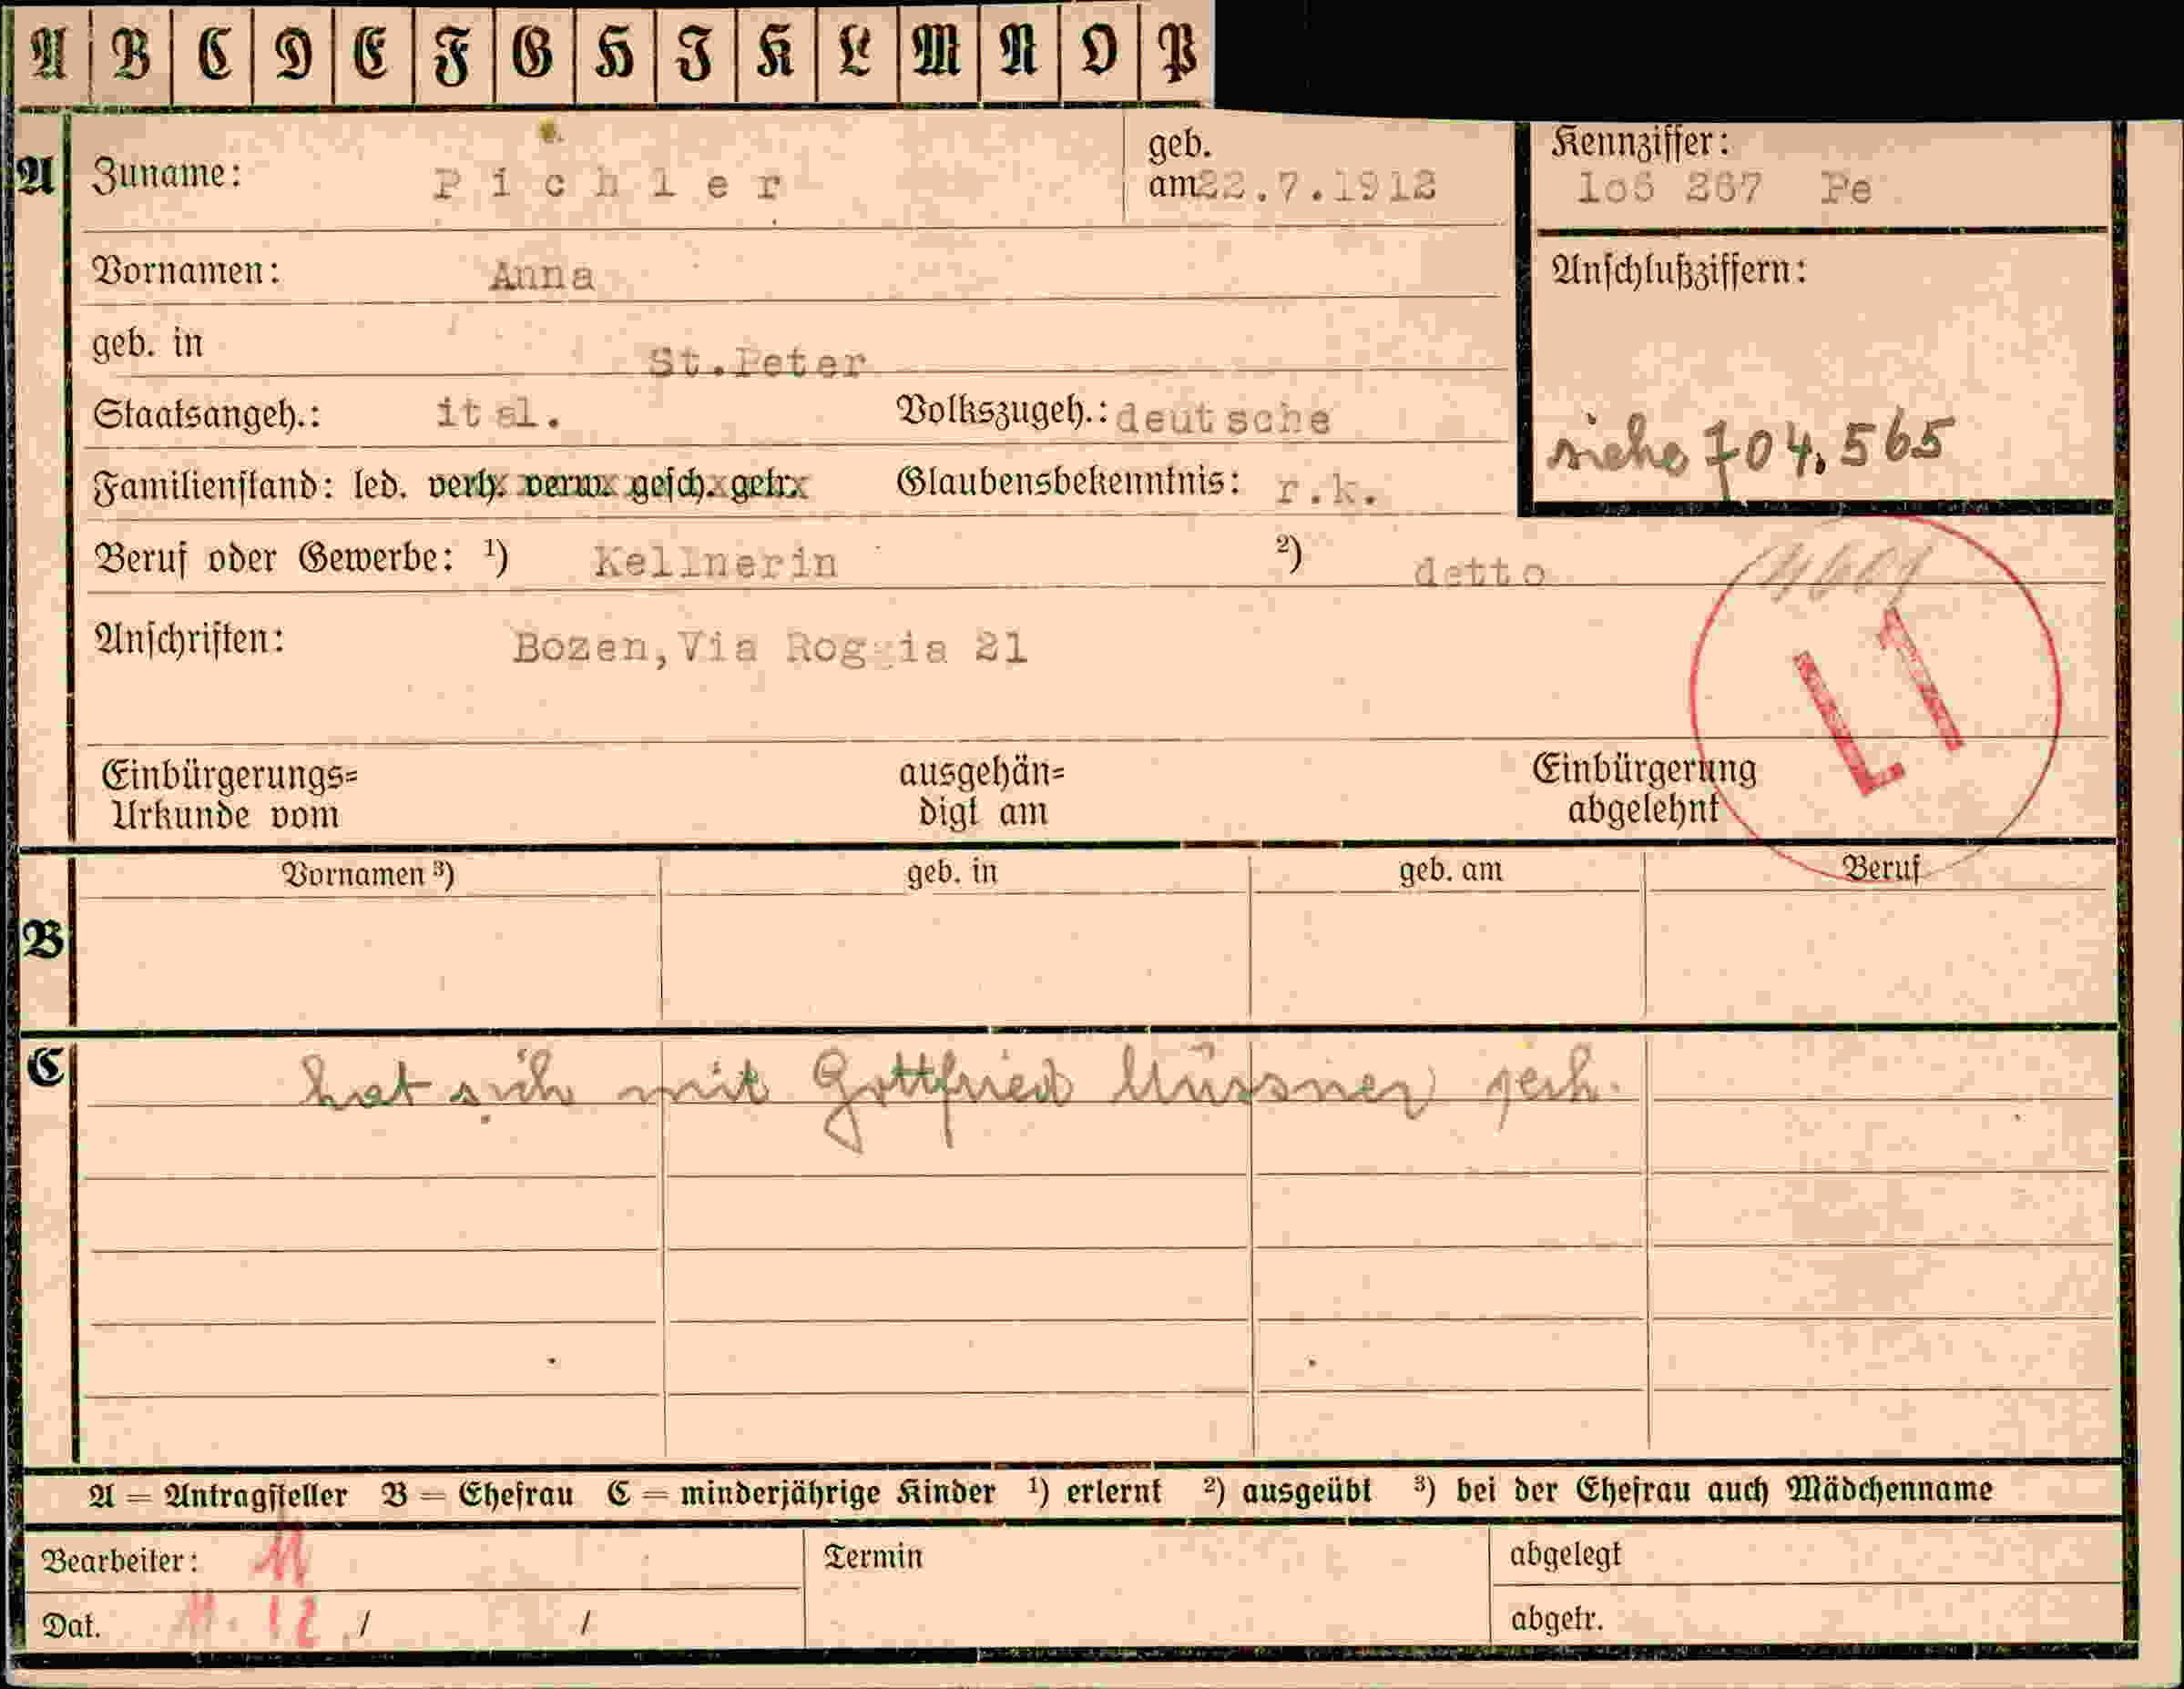 A B C D E F G H I K L M N O P
A Zuname: Pichler geb. am 22.7.1912 Kennziffer: 1o6 267 Pe
Vornamen: Anna Anschlußziffern:
geb. in St.Peter
Staatsangeh.: ital. Volkszugeh.: deutsche
siehe 704.565
Familienstand: led. verh. verw. gesch. getr. Glaubensbekenntnis: r.k.
Beruf oder Gewerbe: ¹) Kellnerin ²) detto
Anschriften: Bozen,Via Roggia 21
LT
Einbürgerungs= Urkunde vom ausgehän= digt am Einbürgerung abgelehnt
B Vornamen ³) geb. in geb. am Beruf
C hat sich mit Gottfried Mussner
A = Antragsteller B = Ehefrau C = minderjährige Kinder ¹) erlernt ²) ausgeübt ³) bei der Ehefrau auch Mädchenname
Bearbeiter: Termin abgelegt
Dat. 11. 12 / / abgetr.